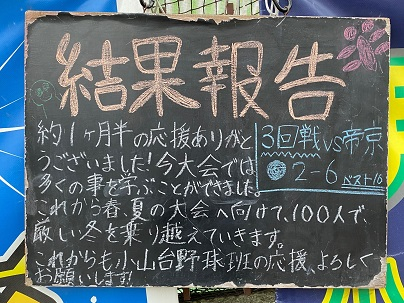 結果報告
約1ヶ月半の応援ありがと
うございました!今大会では
多くの事を学ぶことができました。
これから春、夏の大会へ向けて、100人で、
厳しい冬を乗り越えていきます。
これからも小山台野球班の応援、よろしく
お願いします!
3回戦vs帝京
2-6 ベスト16